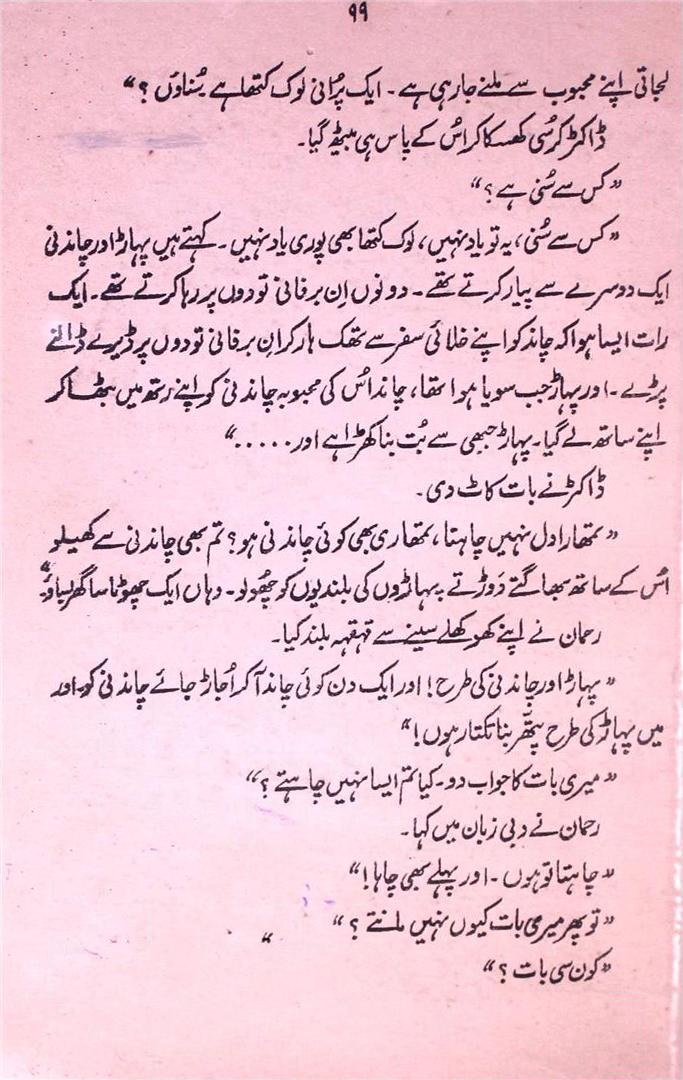 ۹۹
لجاتی اپنے محبوب سے ملنے جا رہی ہے۔ ایک پُرانی لوک کتھا ہے سُناؤں؟“
ڈاکٹر کرُسی کھسکا کر اُس کے پاس ہی بیٹھ گیا۔
”کس سے سُنی ہے؟“
”کس سے سُنی، یہ تو یاد نہیں، لوک کتھا بھی پوری یاد نہیں۔ کہتے ہیں پہاڑ اور چاندنی
ایک دوسرے سے پیار کرتے تھے۔ دونوں اِن برفانی تودوں پر رہا کرتے تھے۔ ایک
رات ایسا ہوا کہ چاند کو اپنے خلائی سفر سے تھک ہار کر اِن برفانی تودوں پر ڈیرے ڈالنے
پڑے۔ اور پہاڑ جب سویا ہوا تھا، چاند اُس کی محبوبہ چاندنی کو اپنے رتھ میں بٹھا کر
اپنے ساتھ لے گیا۔ پہاڑ جبھی سے بُت بنا کھڑا ہے اور.....“
ڈاکٹر نے بات کاٹ دی۔
”تمھارا دل نہیں چاہتا، تمھاری بھی کوئی چاندنی ہو؟ تم بھی چاندنی سے کھیلو
اُس کے ساتھ بھاگتے دَوڑتے پہاڑوں کی بلندیوں کو چھُولو۔ وہاں ایک چھوٹا سا گھر بساؤ“
رحمان نے اپنے کھوکھلے سینے سے قہقہہ بلند کیا۔
”پہاڑ اور چاندنی کی طرح! اور ایک دن کوئی چاند آ کر اُجاڑ جائے چاندنی کو۔ اور
میں پہاڑ کی طرح پتھّر بنا تکتا رہوں!“
”میری بات کا جواب دو۔ کیا تم ایسا نہیں چاہتے؟“
رحمان نے دبی زبان میں کہا۔
”چاہتا تو ہوں۔ اور پہلے بھی چاہا!“
”تو پھر میری بات کیوں نہیں مانتے؟“
”کون سی بات؟“